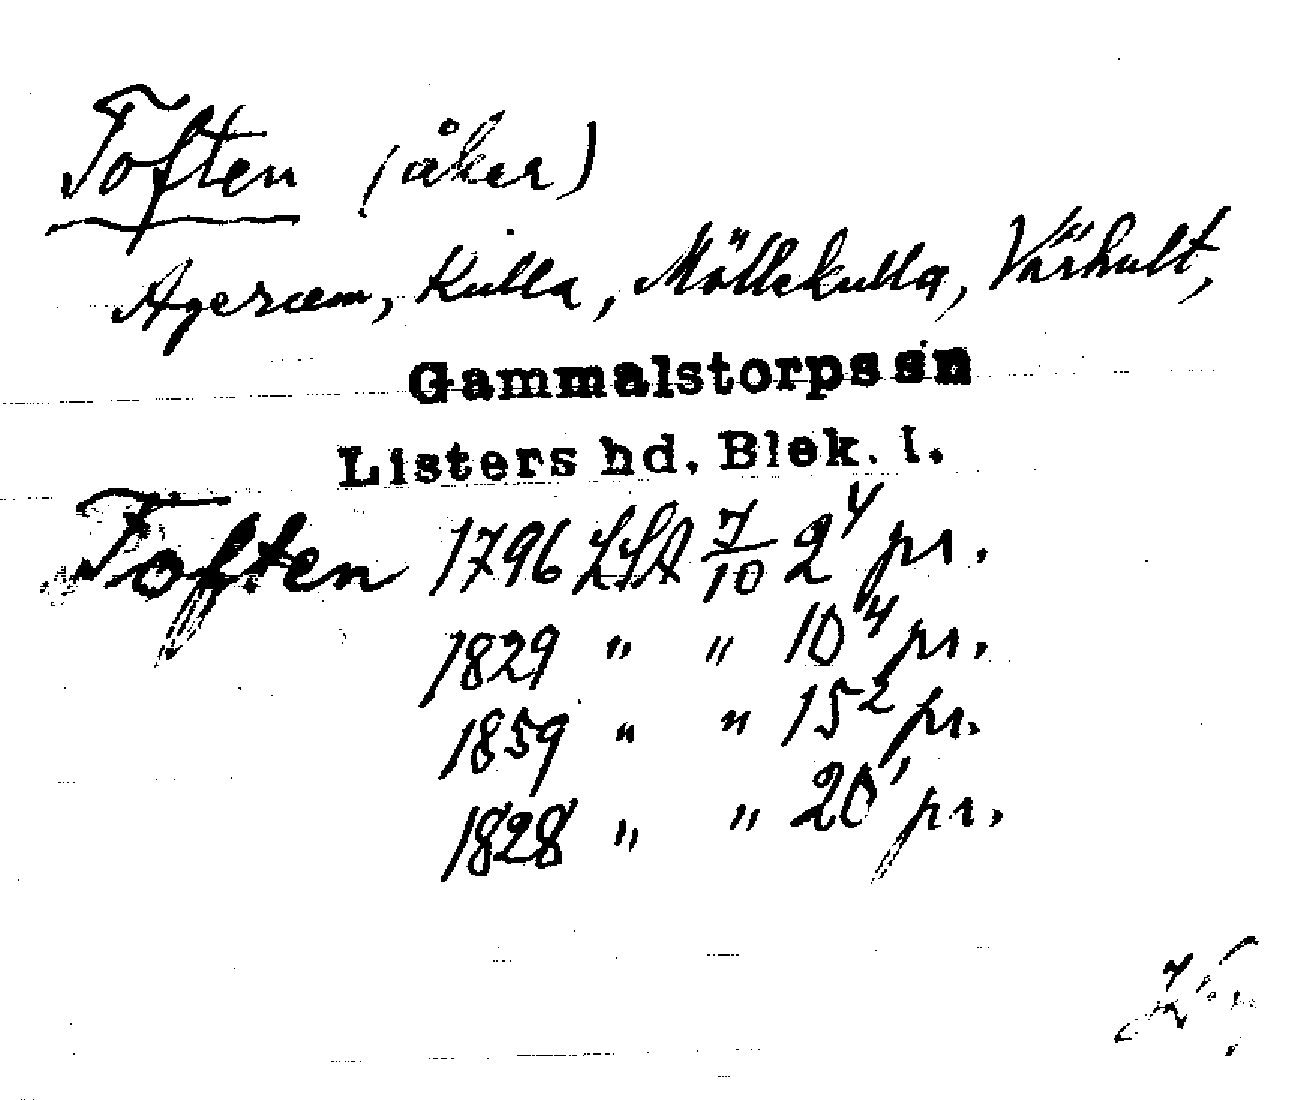 Toften (åker)
Agerum, Kulla, Möllekulla, Värhult,
Gammalstorps sn
Listers hd. Blek. l.
Toften 1796 LSA 7/10 2⁴ pr.
1829 " " 10⁴ pr.
1859 " " 15² pr.
1828 " " 20¹ pr.